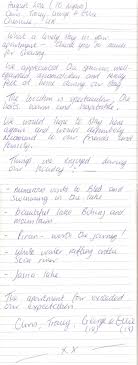 August 2016 (10 nights)
Chris, Tracy, George & Ella
Cheshire, UK
What a lovely stay in your
apartment - Thank you so much
for having
We appreciated the spacious, well
equipped accommodation and really
felt at home during our stay
The location is spectacular, the
hosts warm and hospitable
We would hope to stay here
again and would definitely
recommend to our friends and
family.
Things we enjoyed during
our holiday :-
- numerous visits to Bled and
swimming in the lake
- Beautiful lake Bohinj and
mountains
- Piran - worth the journey!
- White water rafting on the
Soča river
- Jasna lake
The apartment far exceeded
our expectations
Chris, Tracy, George & Ella
x x